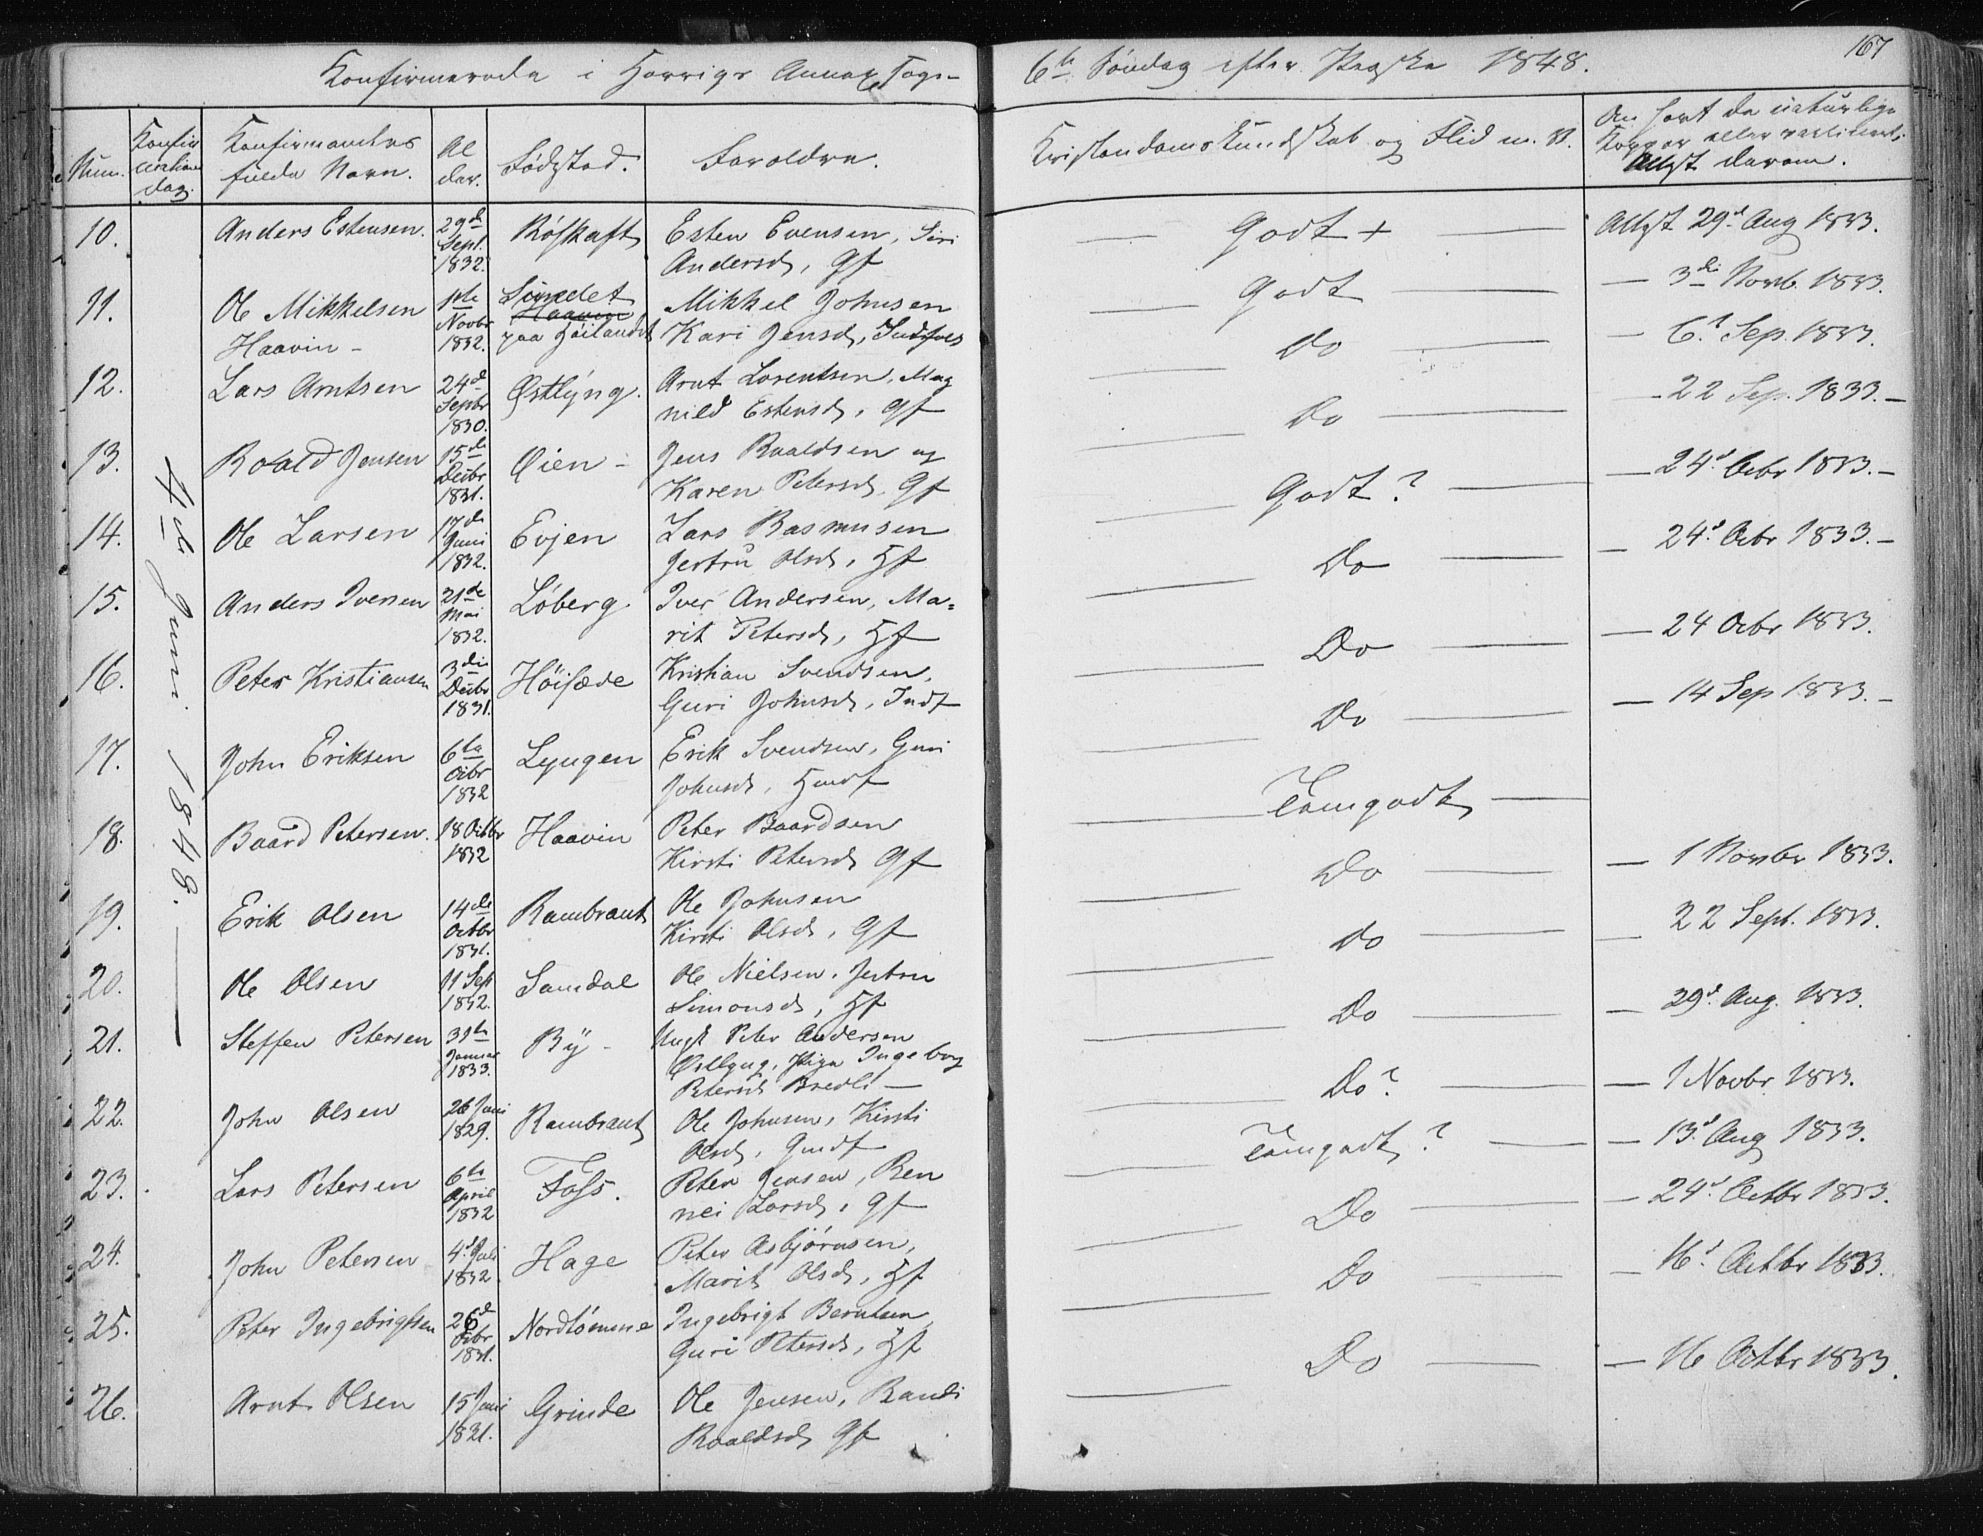 Konfirmerede i Horrigs Annex
6te Søndag efter Paaske 1848.
167
Num.
Konfirmations dag.
Konfirmantens fulde Navn.
Alder.
Fødested.
Foreldre.
Kristendomskundskab og Flid m. v.
Om havt de naturlige Kopper eller vaccineret. Attest derom.
4de Juni 1848.
10. Anders Estensen. 29de Sept. 1832. Røskaft Esten Evensen, Siri Andersd, Gf Godt + Attest 29d Aug 1833.
11. Ole Mikkelsen Haavin - 1ste Novbr 1832. Sundet paa Høilandet Mikkel Johnsen Kari Jensd, Indfves Godt — 3die Novb. 1833.
12. Lars Arntsen 24de Sepbr 1830. Østlyng. Arnt Lorentsen, Magnild Estensd, Gf Do — 6t Sep. 1833.
13. Roald Jensen 15de Debr 1831. Øien - Jens Roaldsen og Karen Petersd, Gf Do — 22 Sep. 1833. —
14. Ole Larsen 17de Juni 1832. Evjen Lars Rasmusen Jertru Olsd, Hf Godt? — 24d Ocbr 1833. —
15. Anders Iversen 21de Mai 1832. Løberg Iver Andersen, Marit Petersd, Hf Do — 24d Ocbr 1833. —
16. Peter Kristiansen 3die Debr 1831. Høisæde Kristian Svendsen, Guri Johnsd, Indf Do — 24 Ocbr 1833.
17. John Eriksen 6te Ocbr 1832 Lyngen Erik Svendsen, Guri Johnsd, Hmdf Do — 14 Sep 1833. —
18. Baard Petersen. 18 Octbr 1832 Haavin Peter Baardsen Kirsti Petersd Gf Tåmgodt
19. Erik Olsen 14de Octbr 1831. Rambraut Ole Johnsen Kirsti Olsd, Gf Do — 1 Novbr 1833.
20. Ole Olsen 11 Sep 1832. Samdal Ole Nielsen, Jertru Simonsd, Hf Do — 22 Sept. 1833.
21. Steffen Petersen 31te Januar 1833. By - Ungk Peter Andersen Østlyng, Pige Ingeborg Petersd Bredli — Do — 29d Aug. 1833.
22. John Olsen 26 Juni 1829. Rambraut Ole Johnsen, Kirsti Olsd, Gmdf Do? — 1 Novbr 1833.
23. Lars Petersen 6te April 1832 Foss. Peter Jensen, Rennei Larsd, Gf Tåmgodt? — 13d Aug 1833.
24. John Petersen 4d Juli 1832 Hage Peter Asbjørnsen, Marit Olsd, Hf Do — 24d Octbr 1833.
25. Peter Ingebrigtsen 26d Febr 1831. Nordtømme Ingebrigt Berntsen Guri Petersd, Hf Do — 16d Octbr 1833.
26. Arnt Olsen 15 Juni 1821. Grinde Ole Jensen, Randi Roaldsd Gf Do — 16 Octbr 1833.